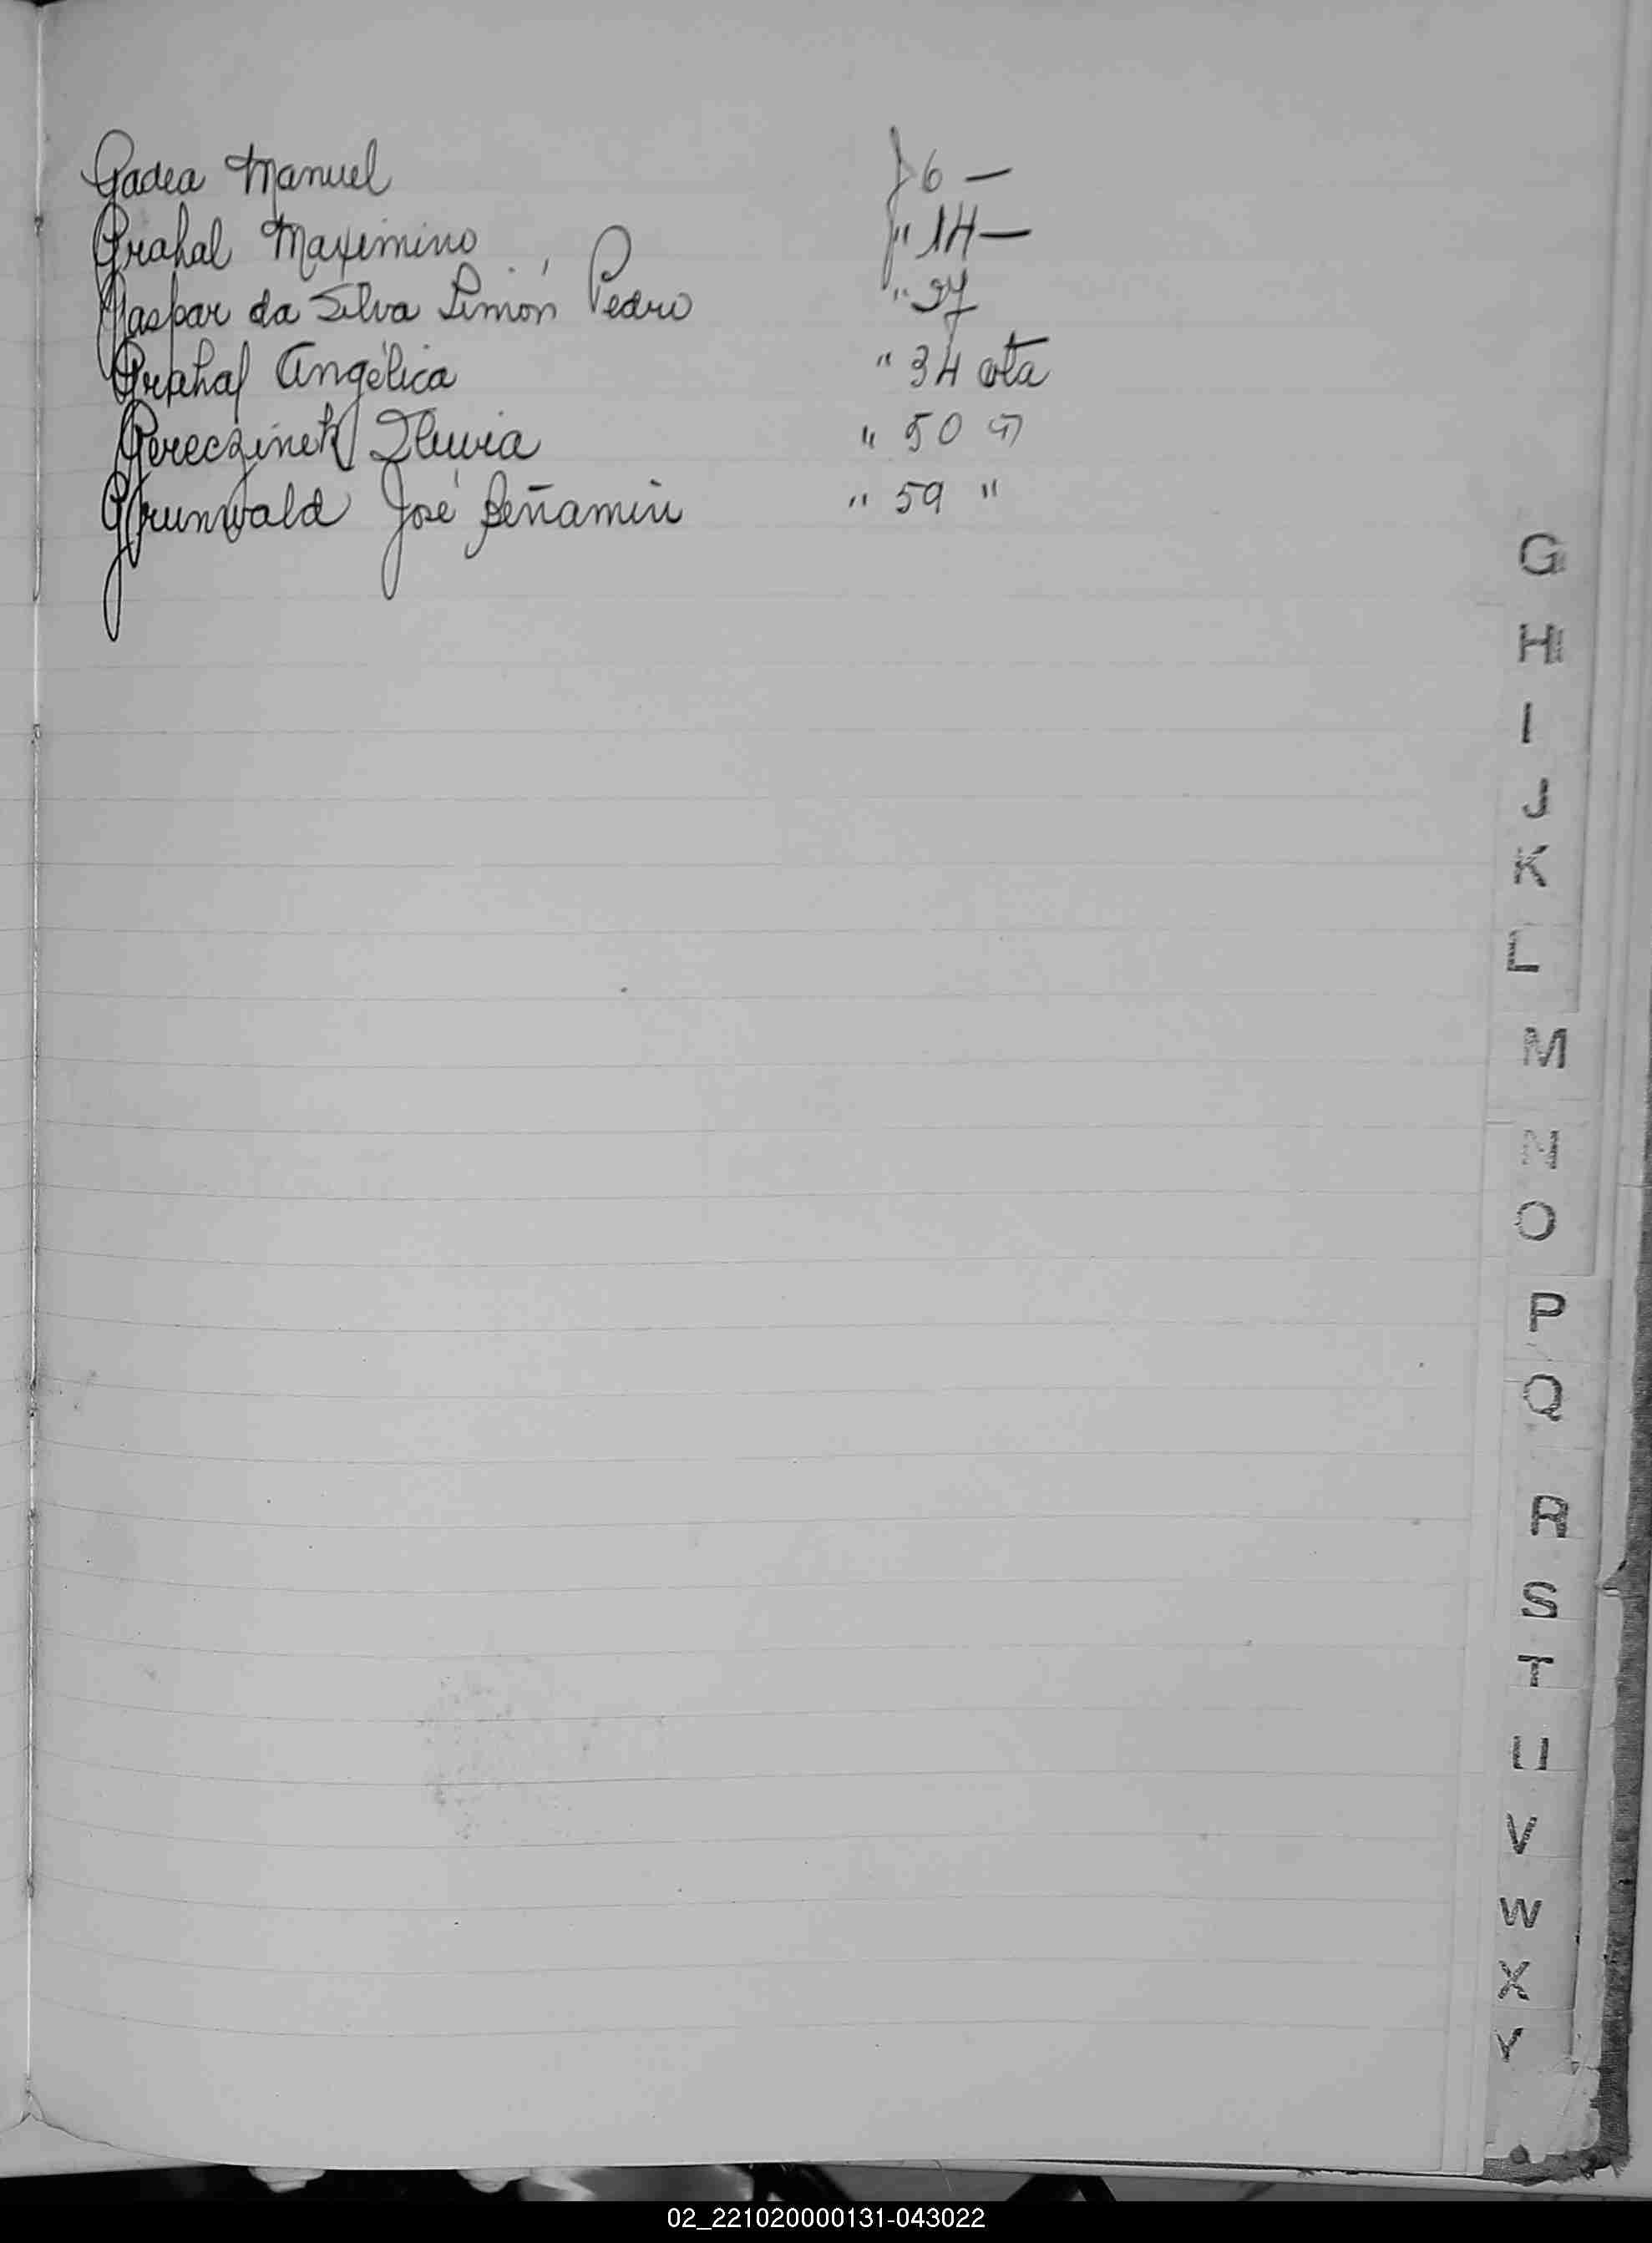 Gadea Manuel f 6 —
Grahal Maximino f" 14 —
Gaspar da Silva Simón Pedro " 27
Grahal Angélica " 34 vta
Gereczinek Iluvia " 50
Grunwald José Beñamin " 59 "
G
H
I
J
K
L
M
N
O
P
Q
R
S
T
U
V
W
X
Y
02_221020000131-043022